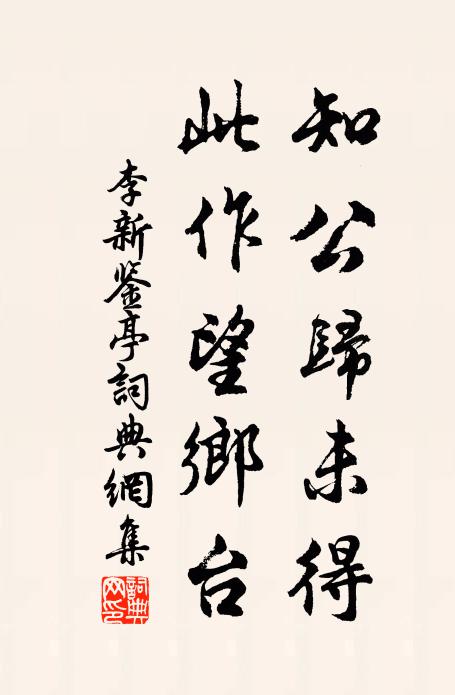 知公歸未得
此作望鄉台
李新鉴亭詞典網集
詞典網印